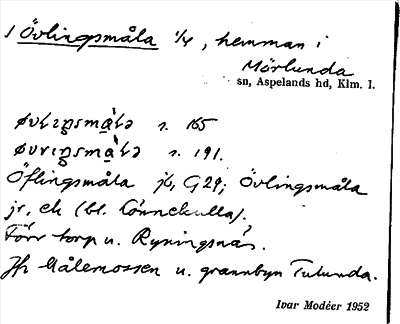 1 Övlingsmåla 1/4, hemman i
Mörlunda
sn, Aspelands hd, Klm. l.
s. 165
s. 191.
Öflingsmåla jb, G 29; Övlingsmåla
jr, ek (bl. Connekulla).
Förr torp u. Ryningsnäs.
Jfr Målemossen u. grannbyn Tulunda.
Ivar Modéer 1952